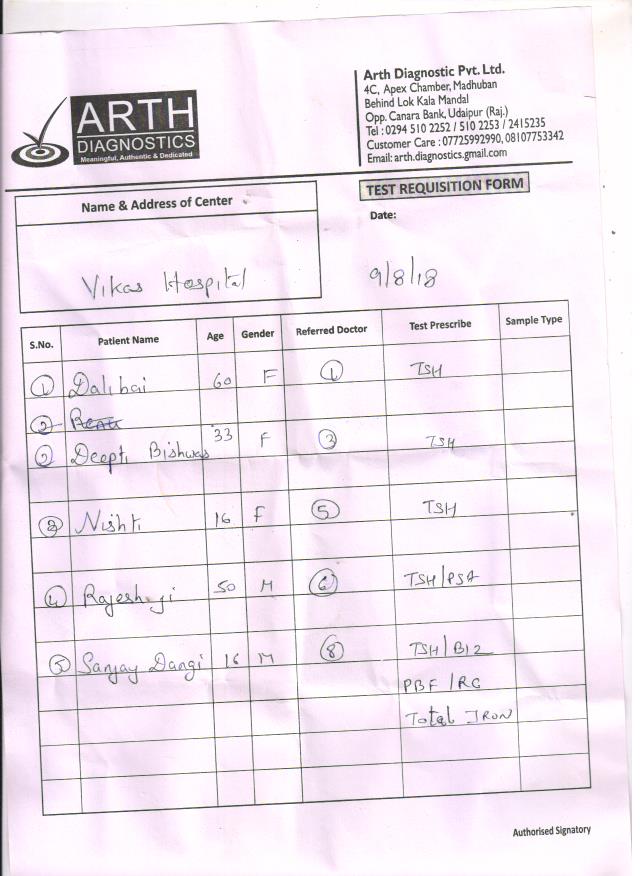 ARTH
DIAGNOSTICS
Meaningful, Authentic & Dedicated
Arth Diagnostic Pvt. Ltd.
4C, Apex Chamber, Madhuban
Behind Lok Kala Mandal
Opp. Canara Bank, Udaipur (Raj.)
Tel : 0294 510 2252 / 510 2253 / 2415235
Customer Care : 07725992990, 08107753342
Email: arth.diagnostics.gmail.com
TEST REQUISITION FORM
Name & Address of Center
Date:
Vikas Hospital
9/8/18
S.No. Patient Name Age Gender Referred Doctor Test Prescribe Sample Type
1 Dalibai 60 F 1 TSH
2
2 Deepti Bishwas 33 F 3 TSH
3 Nishti 16 F 5 TSH
4 Rajesh ji 50 M 6 TSH/PSA
5 Sanjay Dangi 16 M 8 TSH/B12
PBF/RC
Total IRON
Authorised Signatory